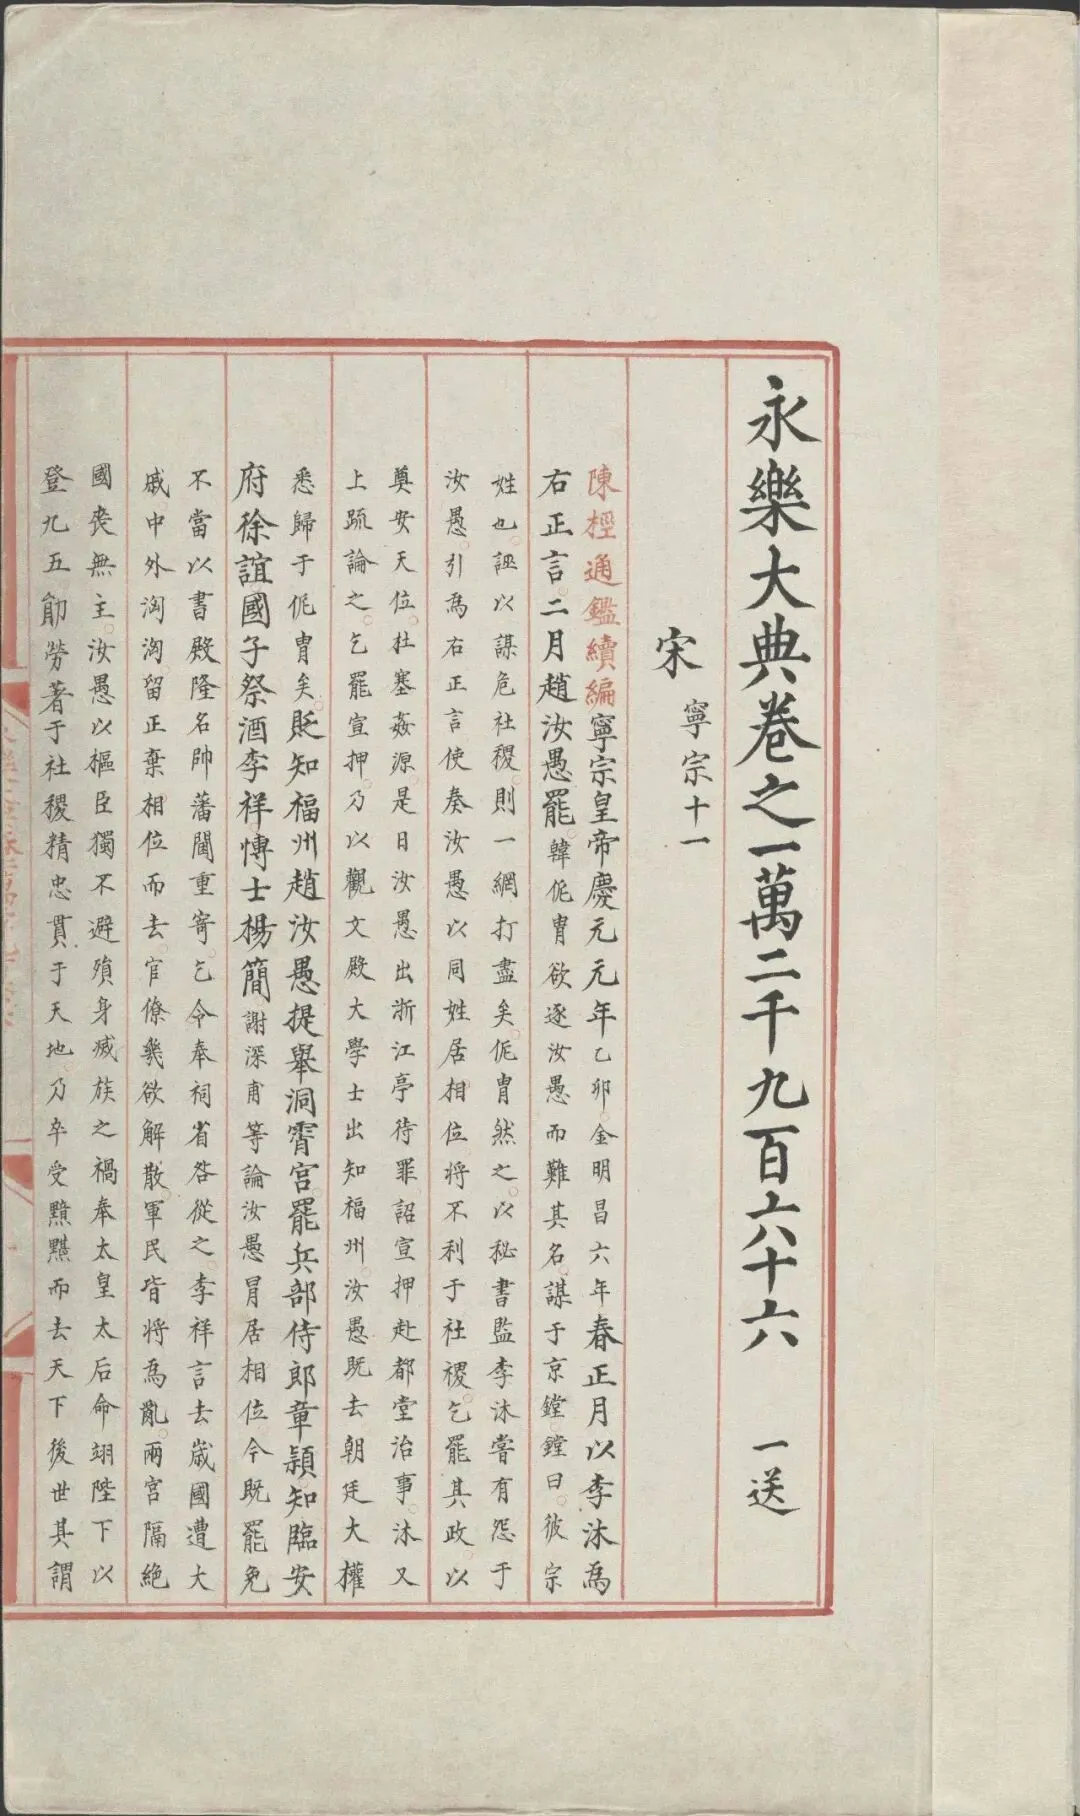 永樂大典卷之一萬二千九百六十六 一送
宋 寧宗十一
陳桱通鑑續編寧宗皇帝慶元元年乙卯金明昌六年春正月以李沐為
右正言二月趙汝愚罷韓侂胄欲逐汝愚而難其名謀于京鏜鏜曰彼宗
姓也誣以謀危社稷則一網打盡矣侂胄然之以秘書監李沐嘗有怨于
汝愚引為右正言使奏汝愚以同姓居相位將不利于社稷乞罷其政以
奠安天位杜塞姦源是日汝愚出浙江亭待罪詔宣押赴都堂治事沐又
上疏論之乞罷宣押乃以觀文殿大學士出知福州汝愚既去朝廷大權
悉歸于侂胄矣貶知福州趙汝愚提舉洞霄宮罷兵部侍郎章頴知臨安
府徐誼國子祭酒李祥愽士楊簡謝深甫等論汝愚冐居相位今既罷免
不當以書殿隆名帥藩閫重寄乞令奉祠省咎從之李祥言去歲國遭大
戚中外洶洶留正棄相位而去官僚幾欲解散軍民皆將為亂兩宮隔絶
國喪無主汝愚以樞臣獨不避殞身滅族之禍奉太皇太后命翊陛下以
登九五勛勞著于社稷精忠貫于天地乃卒受黯黮而去天下後世其謂